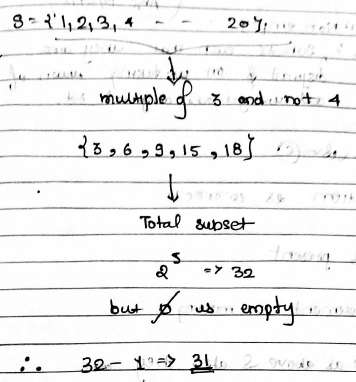 S = {1, 2, 3, 4 - - 20};
↓
multiple of 3 and not 4
{3, 6, 9, 15, 18}
↓
Total subset
2^5 => 32
but ∅ us empty
∴ 32 - 1 => 31